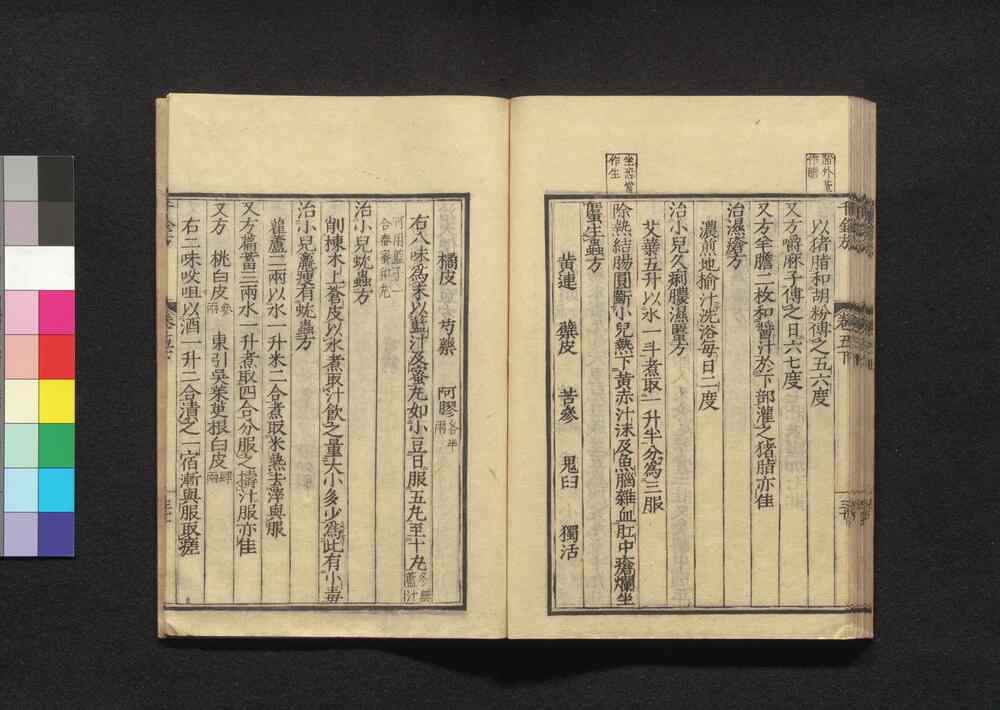 以猪脂和胡粉傅之五六度
又方嚼麻子傅之日六七度
又方羊膽二枚和醬汁於下部灌之猪脂亦佳
治濕䘌方
濃煎地榆汁洗浴每日二度
治小兒久痢膿濕䘌方
艾葉五升以水一斗煮取一升半分爲三服
除熱結腸圓斷小兒熱下黃赤汁沫及魚腦雜血肛中瘡爛坐
䘌生蟲方
黃連 蘗皮 苦參 鬼臼 獨活
橘皮 芍藥 阿膠各半兩
右八味爲末以藍汁及蜜丸如小豆日服五丸至十丸冬無藍汁
合舂蜜和丸
治小兒蚘蟲方
削楝木上蒼皮以水煮取汁飲之量大小多少爲此有小毒
治小兒羸瘦有蚘蟲方
雚蘆二兩以水一升米二合煮取米熟去滓與服
又方萹蓄三兩水一升煮取四合分服之擣汁服亦佳
又方 桃白皮參兩 東引吳茱萸根白皮肆兩
右二味㕮咀以酒一升二合漬之一宿漸與服取瘥
坐恐當
作生